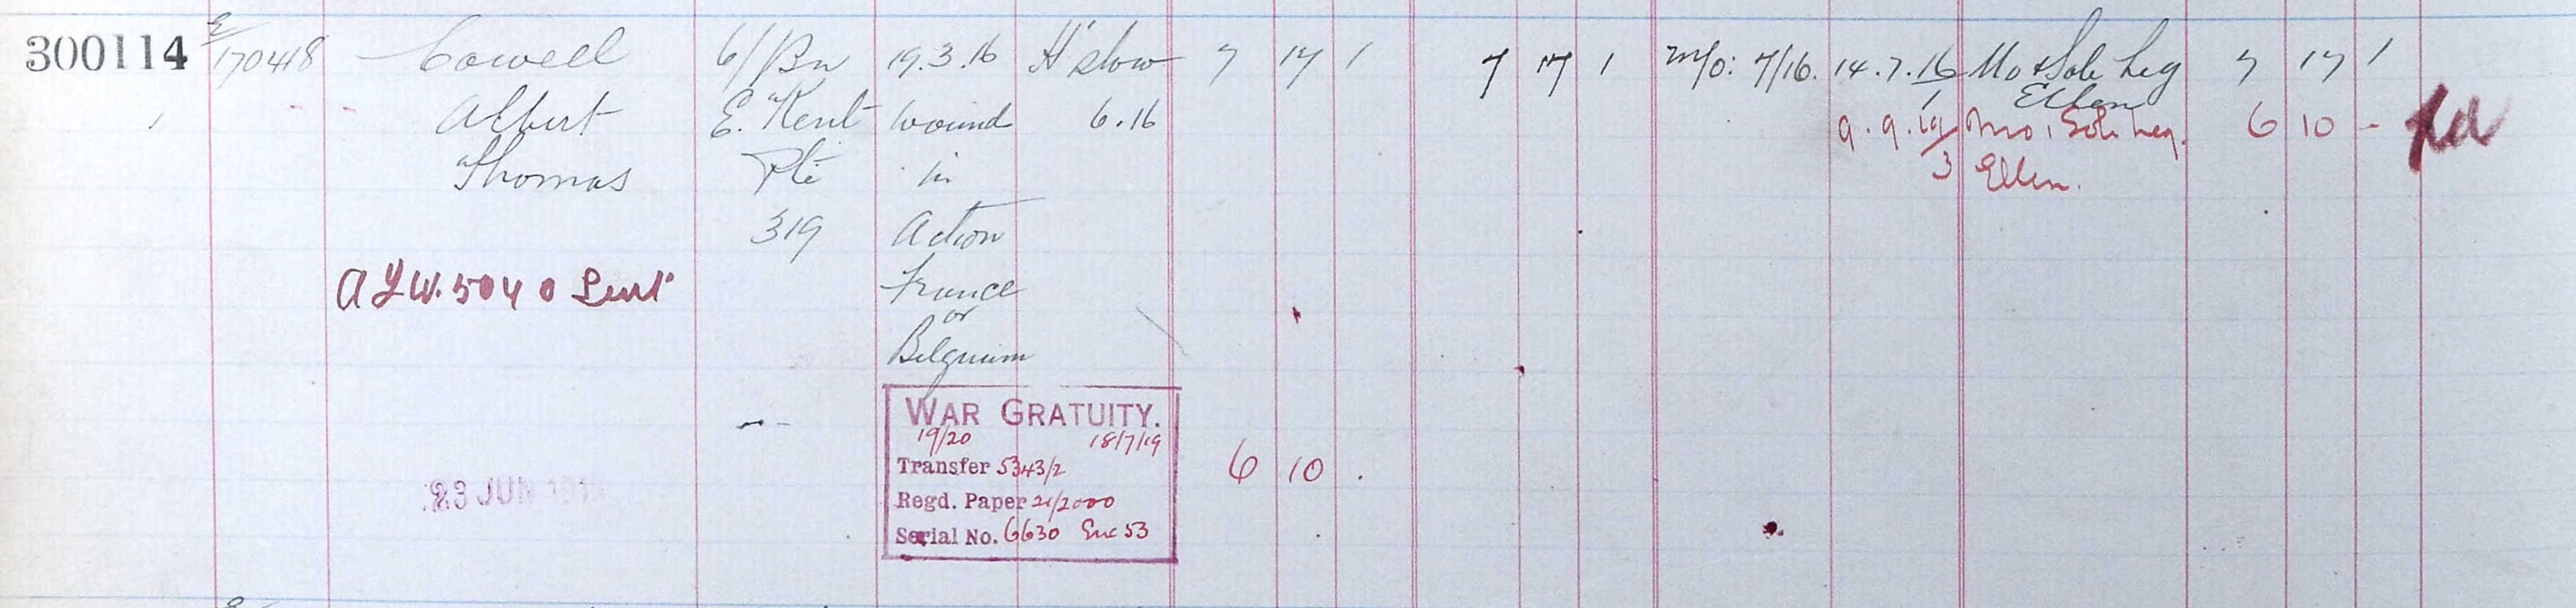 300114 E/170418 Cowell 6/Bn 19.3.16 H'slow 7 17 1 7 17 1 M/o: 7/16. 14.7.16 Mo & Sole Leg 7 17 1
Albert E. Kent wound 6.16 1 Ellen
9.9.19 Mo. Sole Leg. 6 10 -
Thomas Pte in 3 Ellen.
319 Action
France
or
Belgium
WAR GRATUITY.
19/20 18/7/19
Transfer 5343/2 6 10 .
Regd. Paper 21/2000
23 JUN
Serial No. 6630 Enc 53